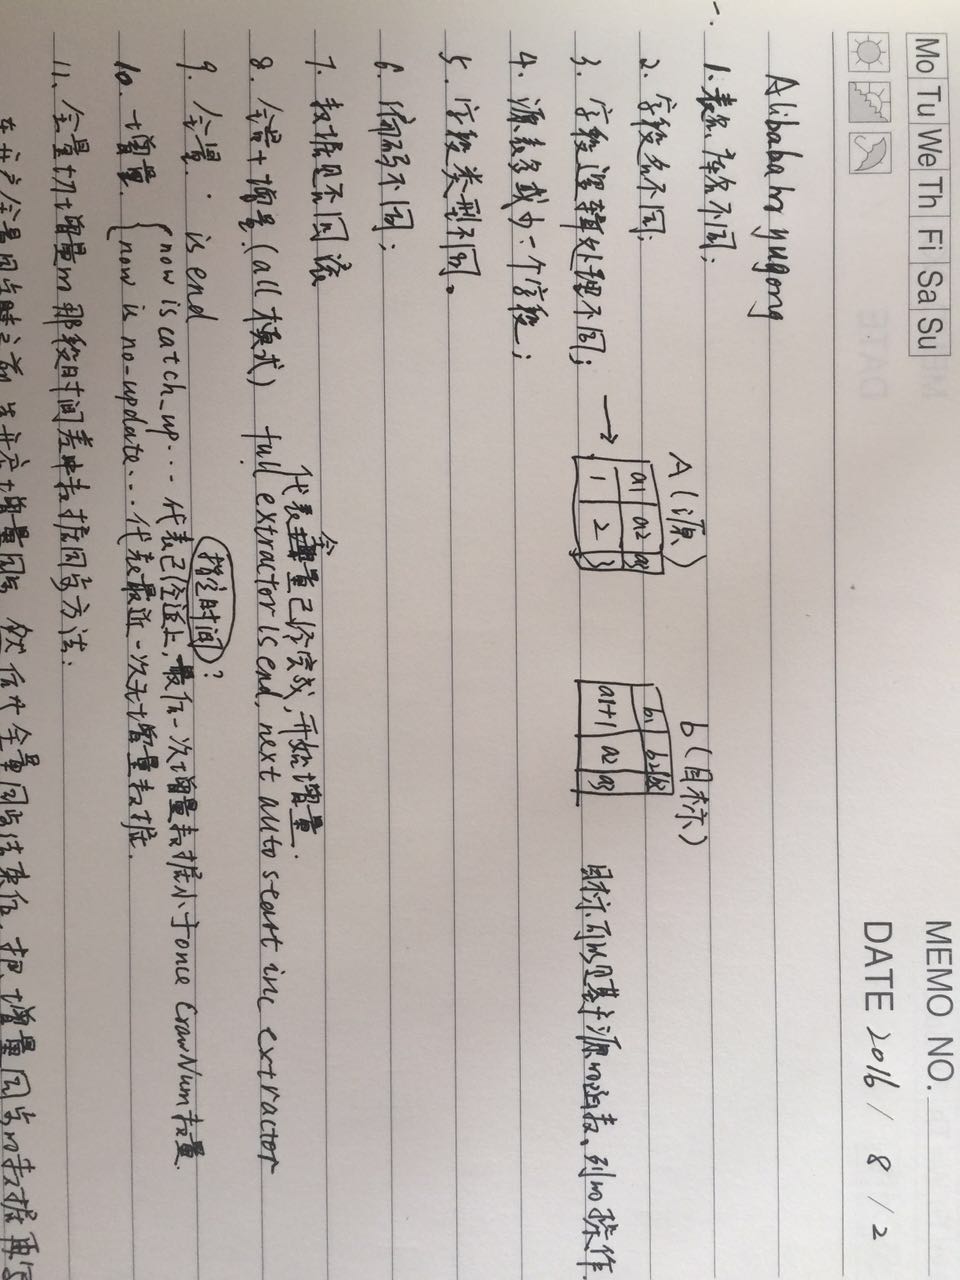 Mo Tu We Th Fi Sa Su
MEMO NO.
DATE 2016 / 8 / 2
Alibaba yugong
一.
1. 表名、库名不同;
2. 字段名不同;
3. 字段逻辑处理不同;
A(源)
a1 a2 a3
1 2 3
b(目标)
b1 b2 b3
a1+1 a2 a3
目标可以是基于源的 表、列的操作
4. 源表多或少一个字段;
5. 字段类型不同。
6. 编码不同;
7. 数据是不同
代表全量已经完成,开始增量.
8. 全量+增量(all 模式) full extractor is end, next auto start inc extractor
9. 全量. is end
指定时间?
10. 增量. { now is catch_up... 代表已经追上,最后一次增量数据小于once CrawNum数量
now is no-update... 代表最近一次无增量数据.
11. 全量加增量的那段时间差中数据同步方法:
在开户全量同步之前,先开启增量同步,然后开全量同步结束后,把增量同步的数据再写